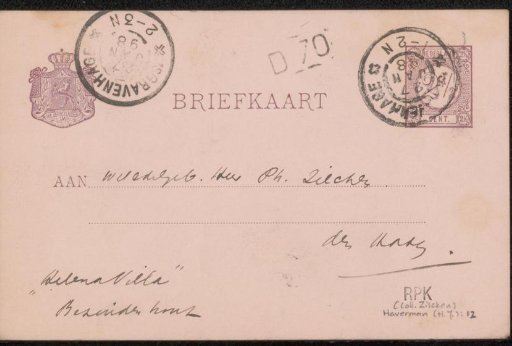 'S GRAVENHAGE
2-3 N
98
D 70
'S GRAVENHAGE
2-3 N
98
CENT.
BRIEFKAART
AAN Weledelgeb. Heer Ph. Zilcken
den Haag.
"Helena Villa"
Bezuidenhout
RPK
(Coll. Zilcken)
Haverman (H.J.): 12